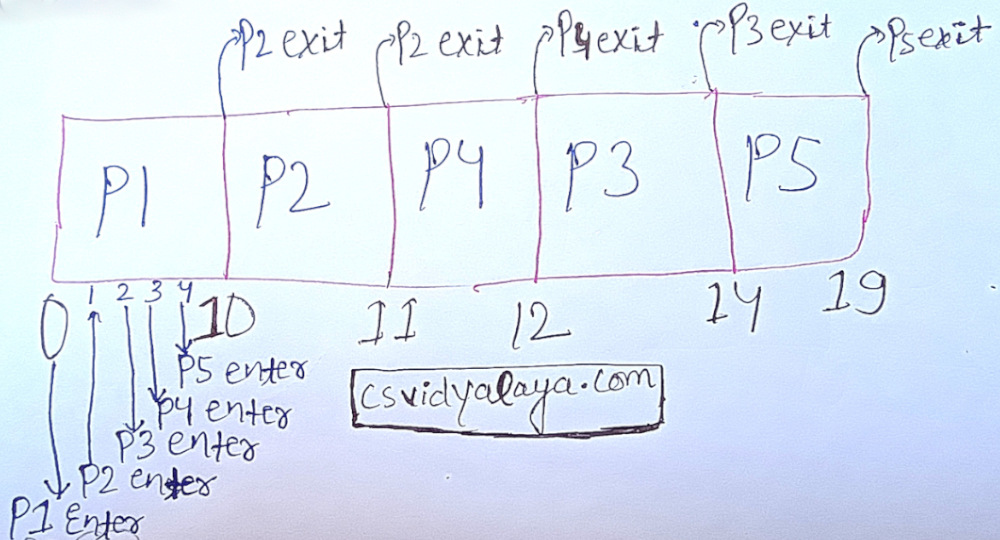 P2 exit P2 exit P4 exit P3 exit P5 exit
P1 P2 P4 P3 P5
0 1 2 3 4 10 11 12 14 19
P5 enter
csvidyalaya.com
P4 enter
P3 enter
P2 enter
P1 Enter